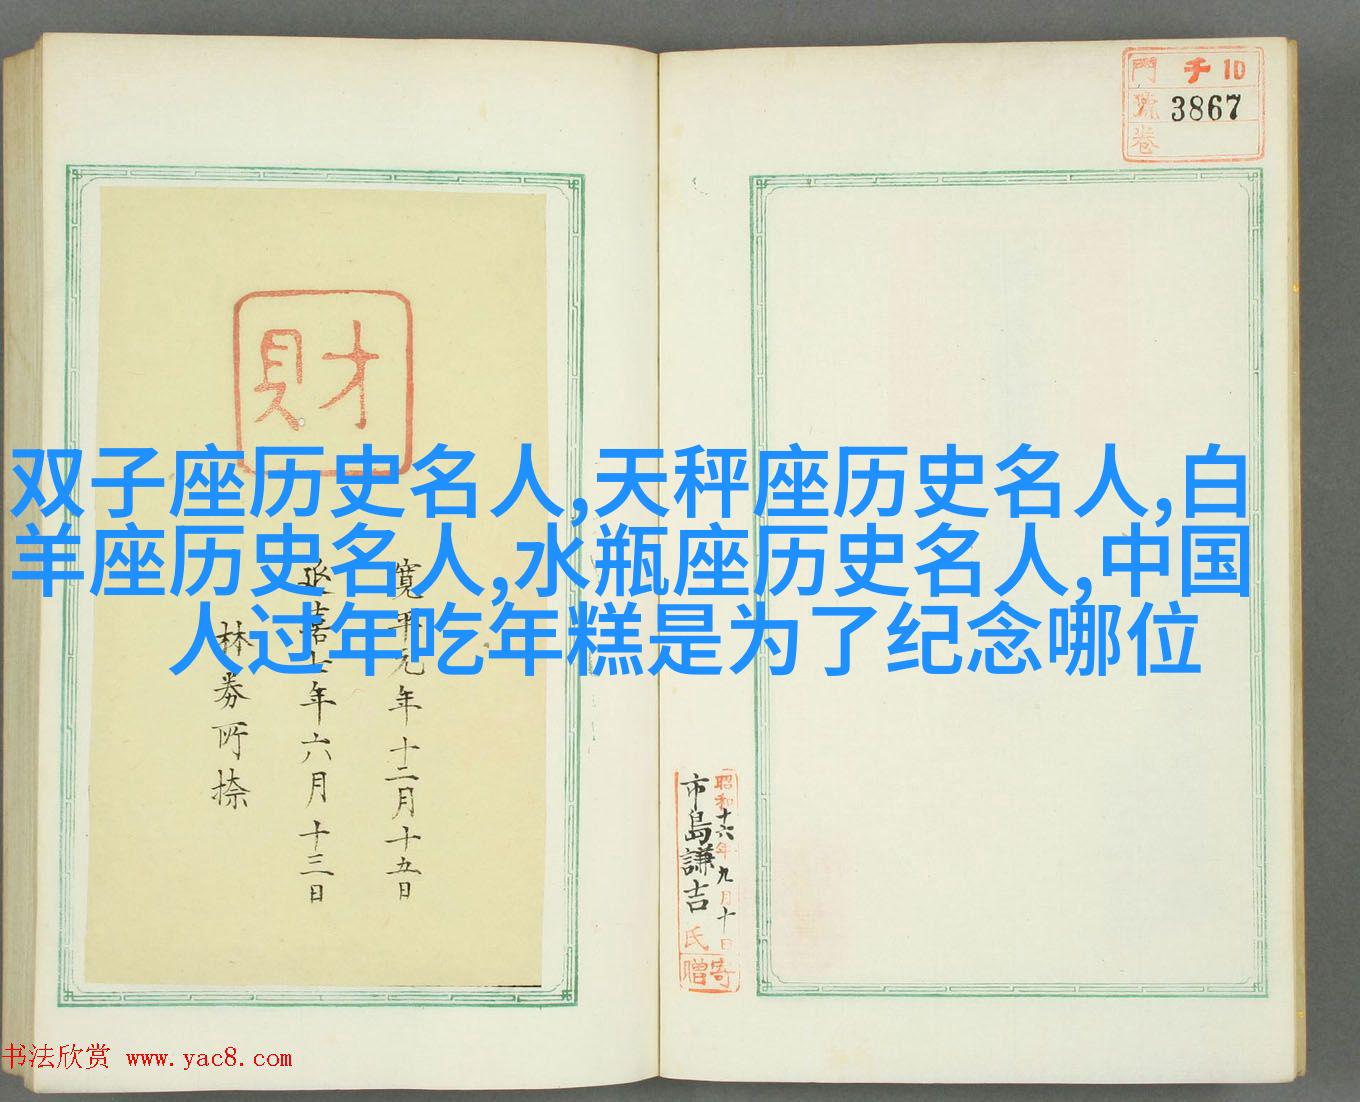 門 千 10
號 3867
卷
財
双子座历史名人,天秤座历史名人,白
羊座历史名人,水瓶座历史名人,中国
人过年吃年糕是为了纪念哪位
寛平元年十二月十五日
延喜七年六月十三日
林券所捺
昭和十六年九月十日
市島謙吉氏
寄贈
书法欣赏 www.yac8.com